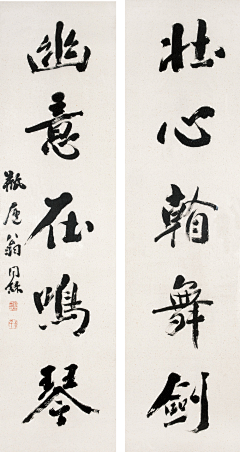 壯心舞劍
幽意在鳴琴
瓶廬翁同龢